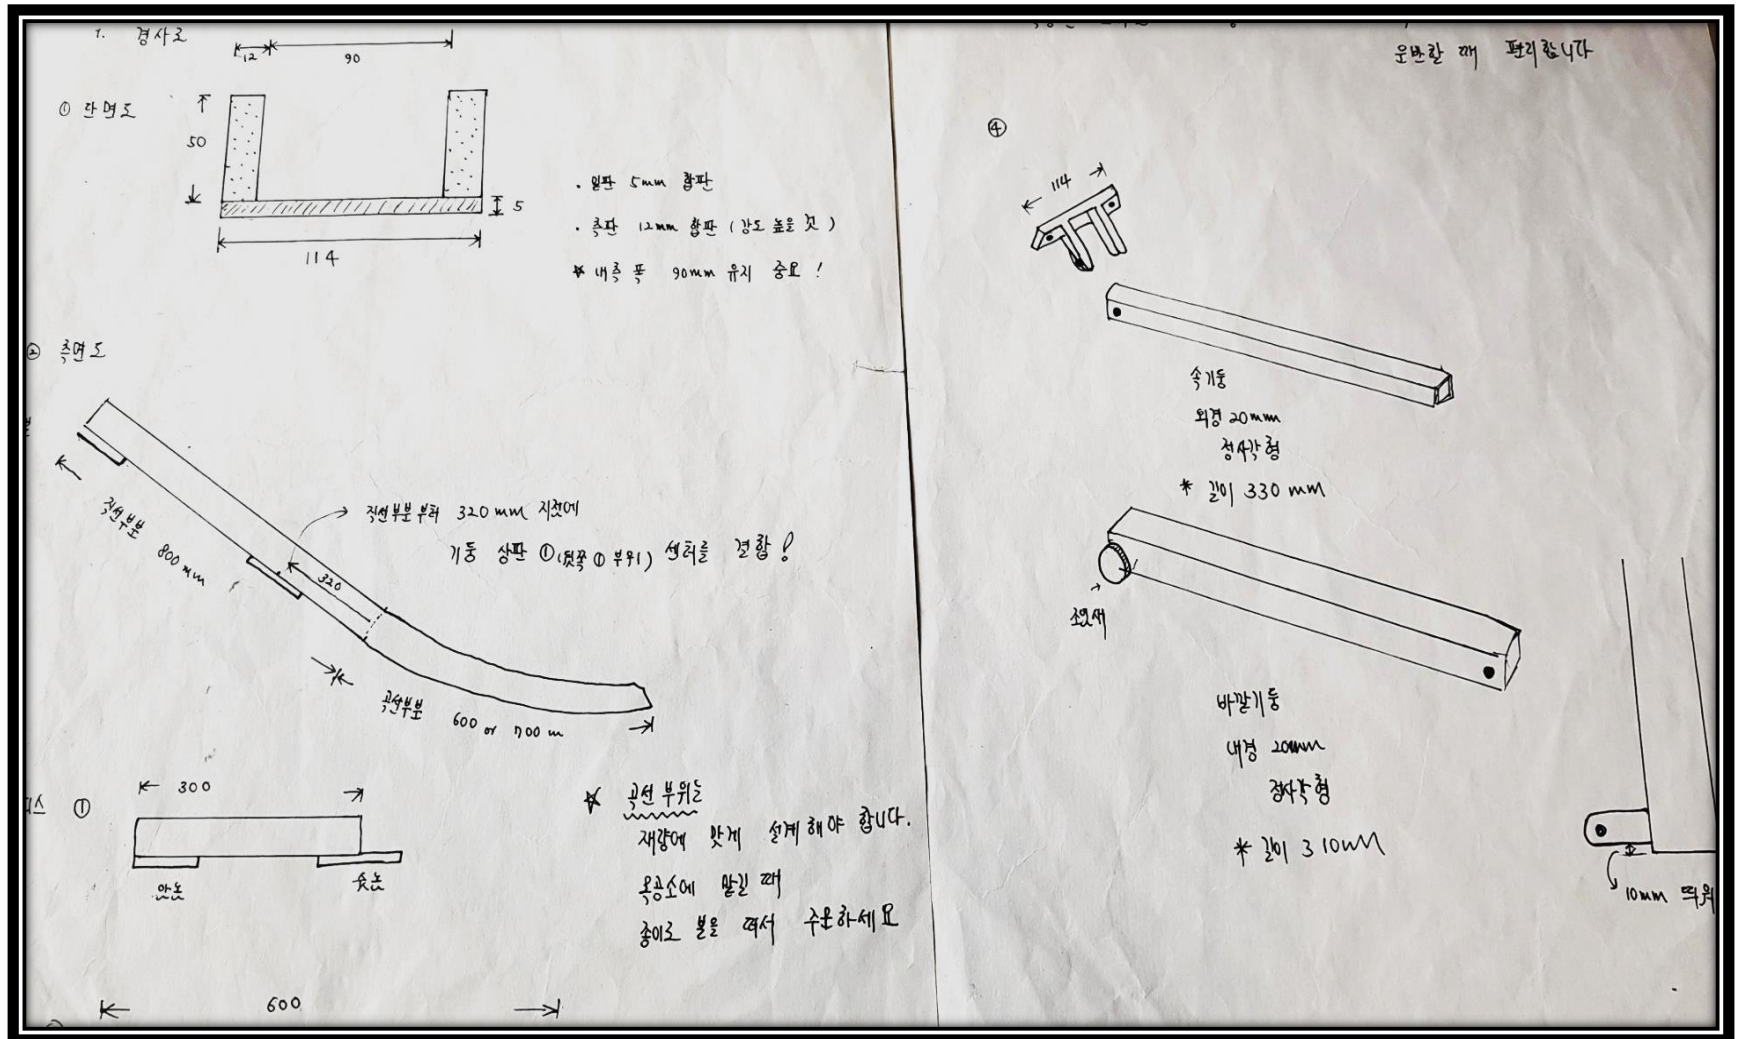 1. 경사로
12
90
① 단면도
50
5
114
· 밑판 5mm 합판
· 측판 12mm 합판 (강도 높은 것)
☆ 내측 폭 90mm 유지 중요!
② 측면도
직선부분
800mm
320
직선부분부터 320mm 지점에
기둥 상판 ①(뒷쪽 ① 부위) 센터를 결합!
곡선부분
600 or 700m
300
①
암놈
숫놈
☆ 곡선 부위는
재량에 맞게 설계해야 합니다.
목공소에 맡길 때
종이로 본을 떠서 주문하세요
600
운반할 때 편리합니다
④
114
속기둥
외경 20mm
정사각형
* 길이 330mm
조임새
바깥기둥
내경 20mm
정사각형
* 길이 310mm
10mm 띄워